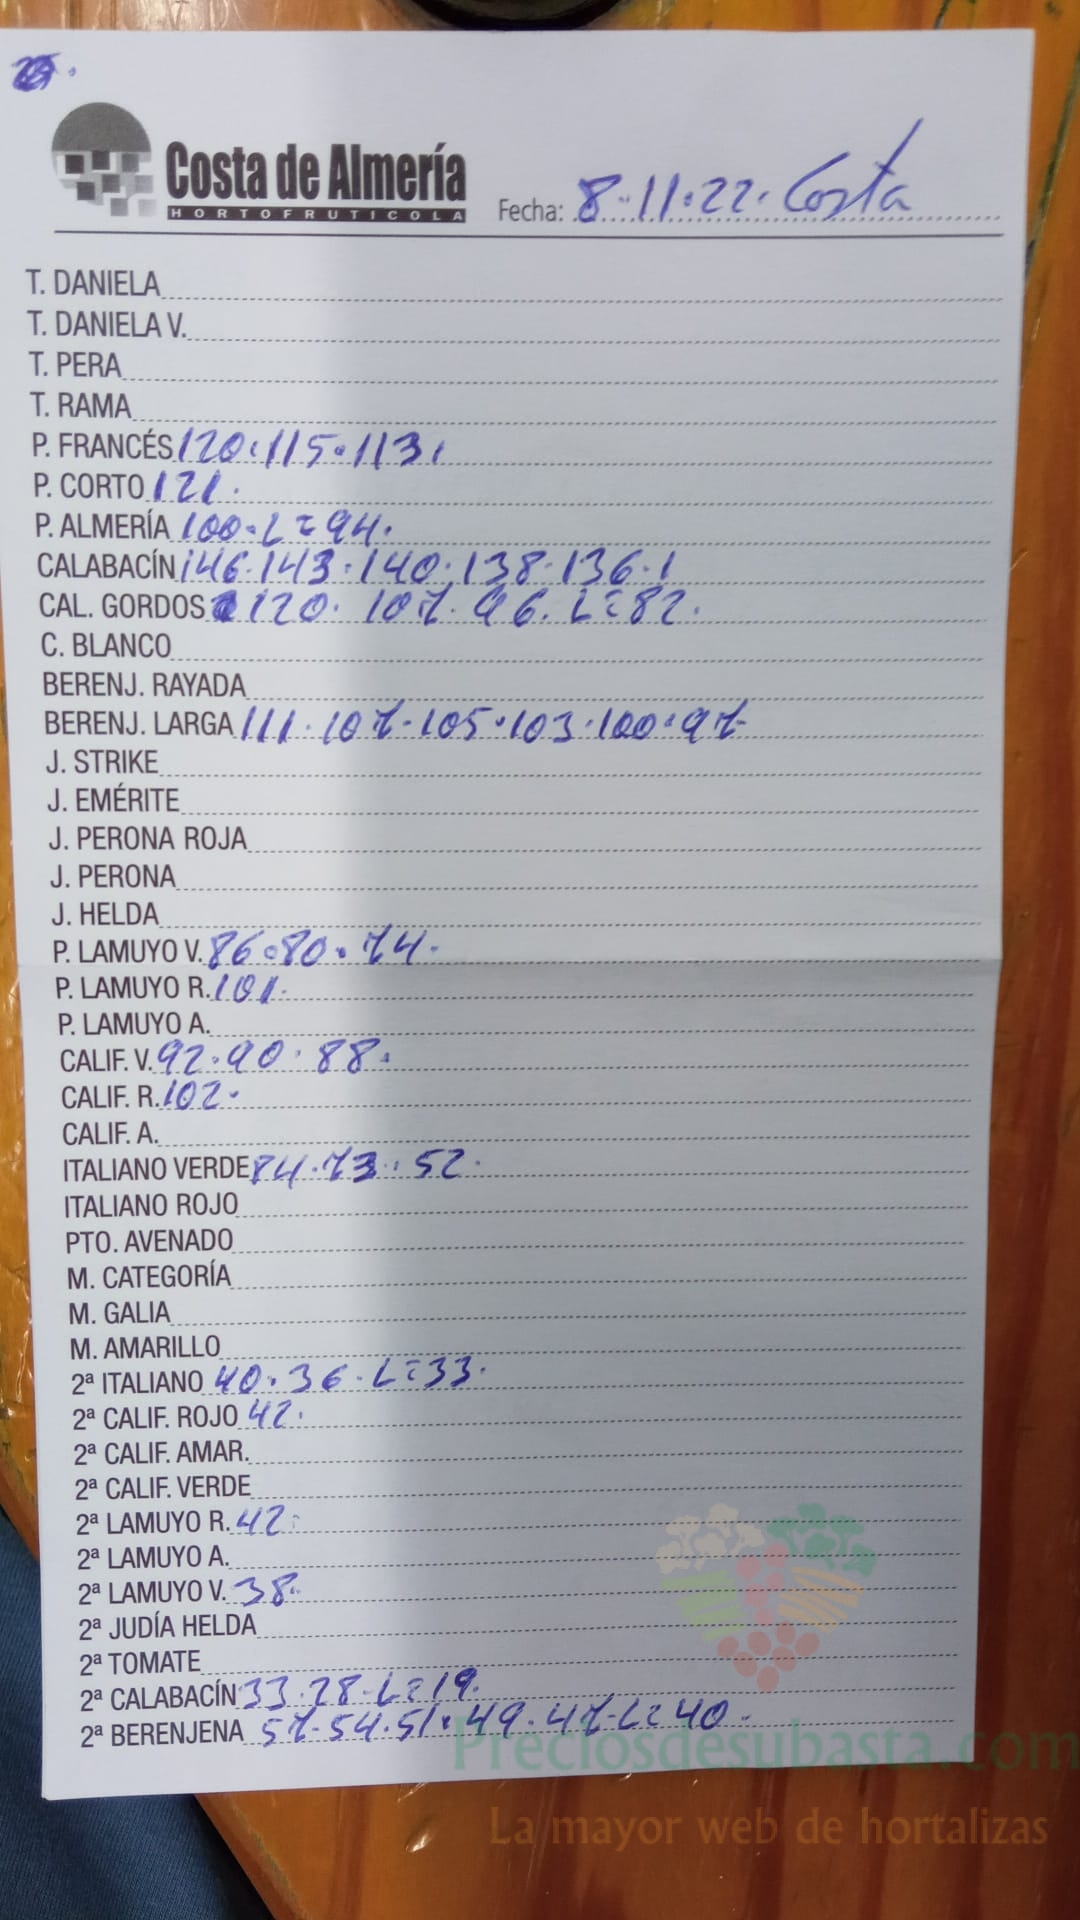 Costa de Almería
HORTOFRUTICOLA
Fecha: 8·11·22· Costa
T. DANIELA
T. DANIELA V.
T. PERA
T. RAMA
P. FRANCÉS 120·115·113·
P. CORTO 121·
P. ALMERÍA 100·L=94·
CALABACÍN 146·143·140·138·136·1
CAL. GORDOS 120· 107· 96· L=82·
C. BLANCO
BERENJ. RAYADA
BERENJ. LARGA 111·107·105·103·100·97·
J. STRIKE
J. EMÉRITE
J. PERONA ROJA
J. PERONA
J. HELDA
P. LAMUYO V. 86·80·74·
P. LAMUYO R. 101·
P. LAMUYO A.
CALIF. V. 92·90·88·
CALIF. R. 102·
CALIF. A.
ITALIANO VERDE 84·73·52·
ITALIANO ROJO
PTO. AVENADO
M. CATEGORÍA
M. GALIA
M. AMARILLO
2ª ITALIANO 40·36·L=33·
2ª CALIF. ROJO 42·
2ª CALIF. AMAR.
2ª CALIF. VERDE
2ª LAMUYO R. 42·
2ª LAMUYO A.
2ª LAMUYO V. 38·
2ª JUDÍA HELDA
2ª TOMATE
2ª CALABACÍN 33·28·L=19·
2ª BERENJENA 57·54·51·49·47·L=40·
Preciosdesubasta.com
La mayor web de hortalizas